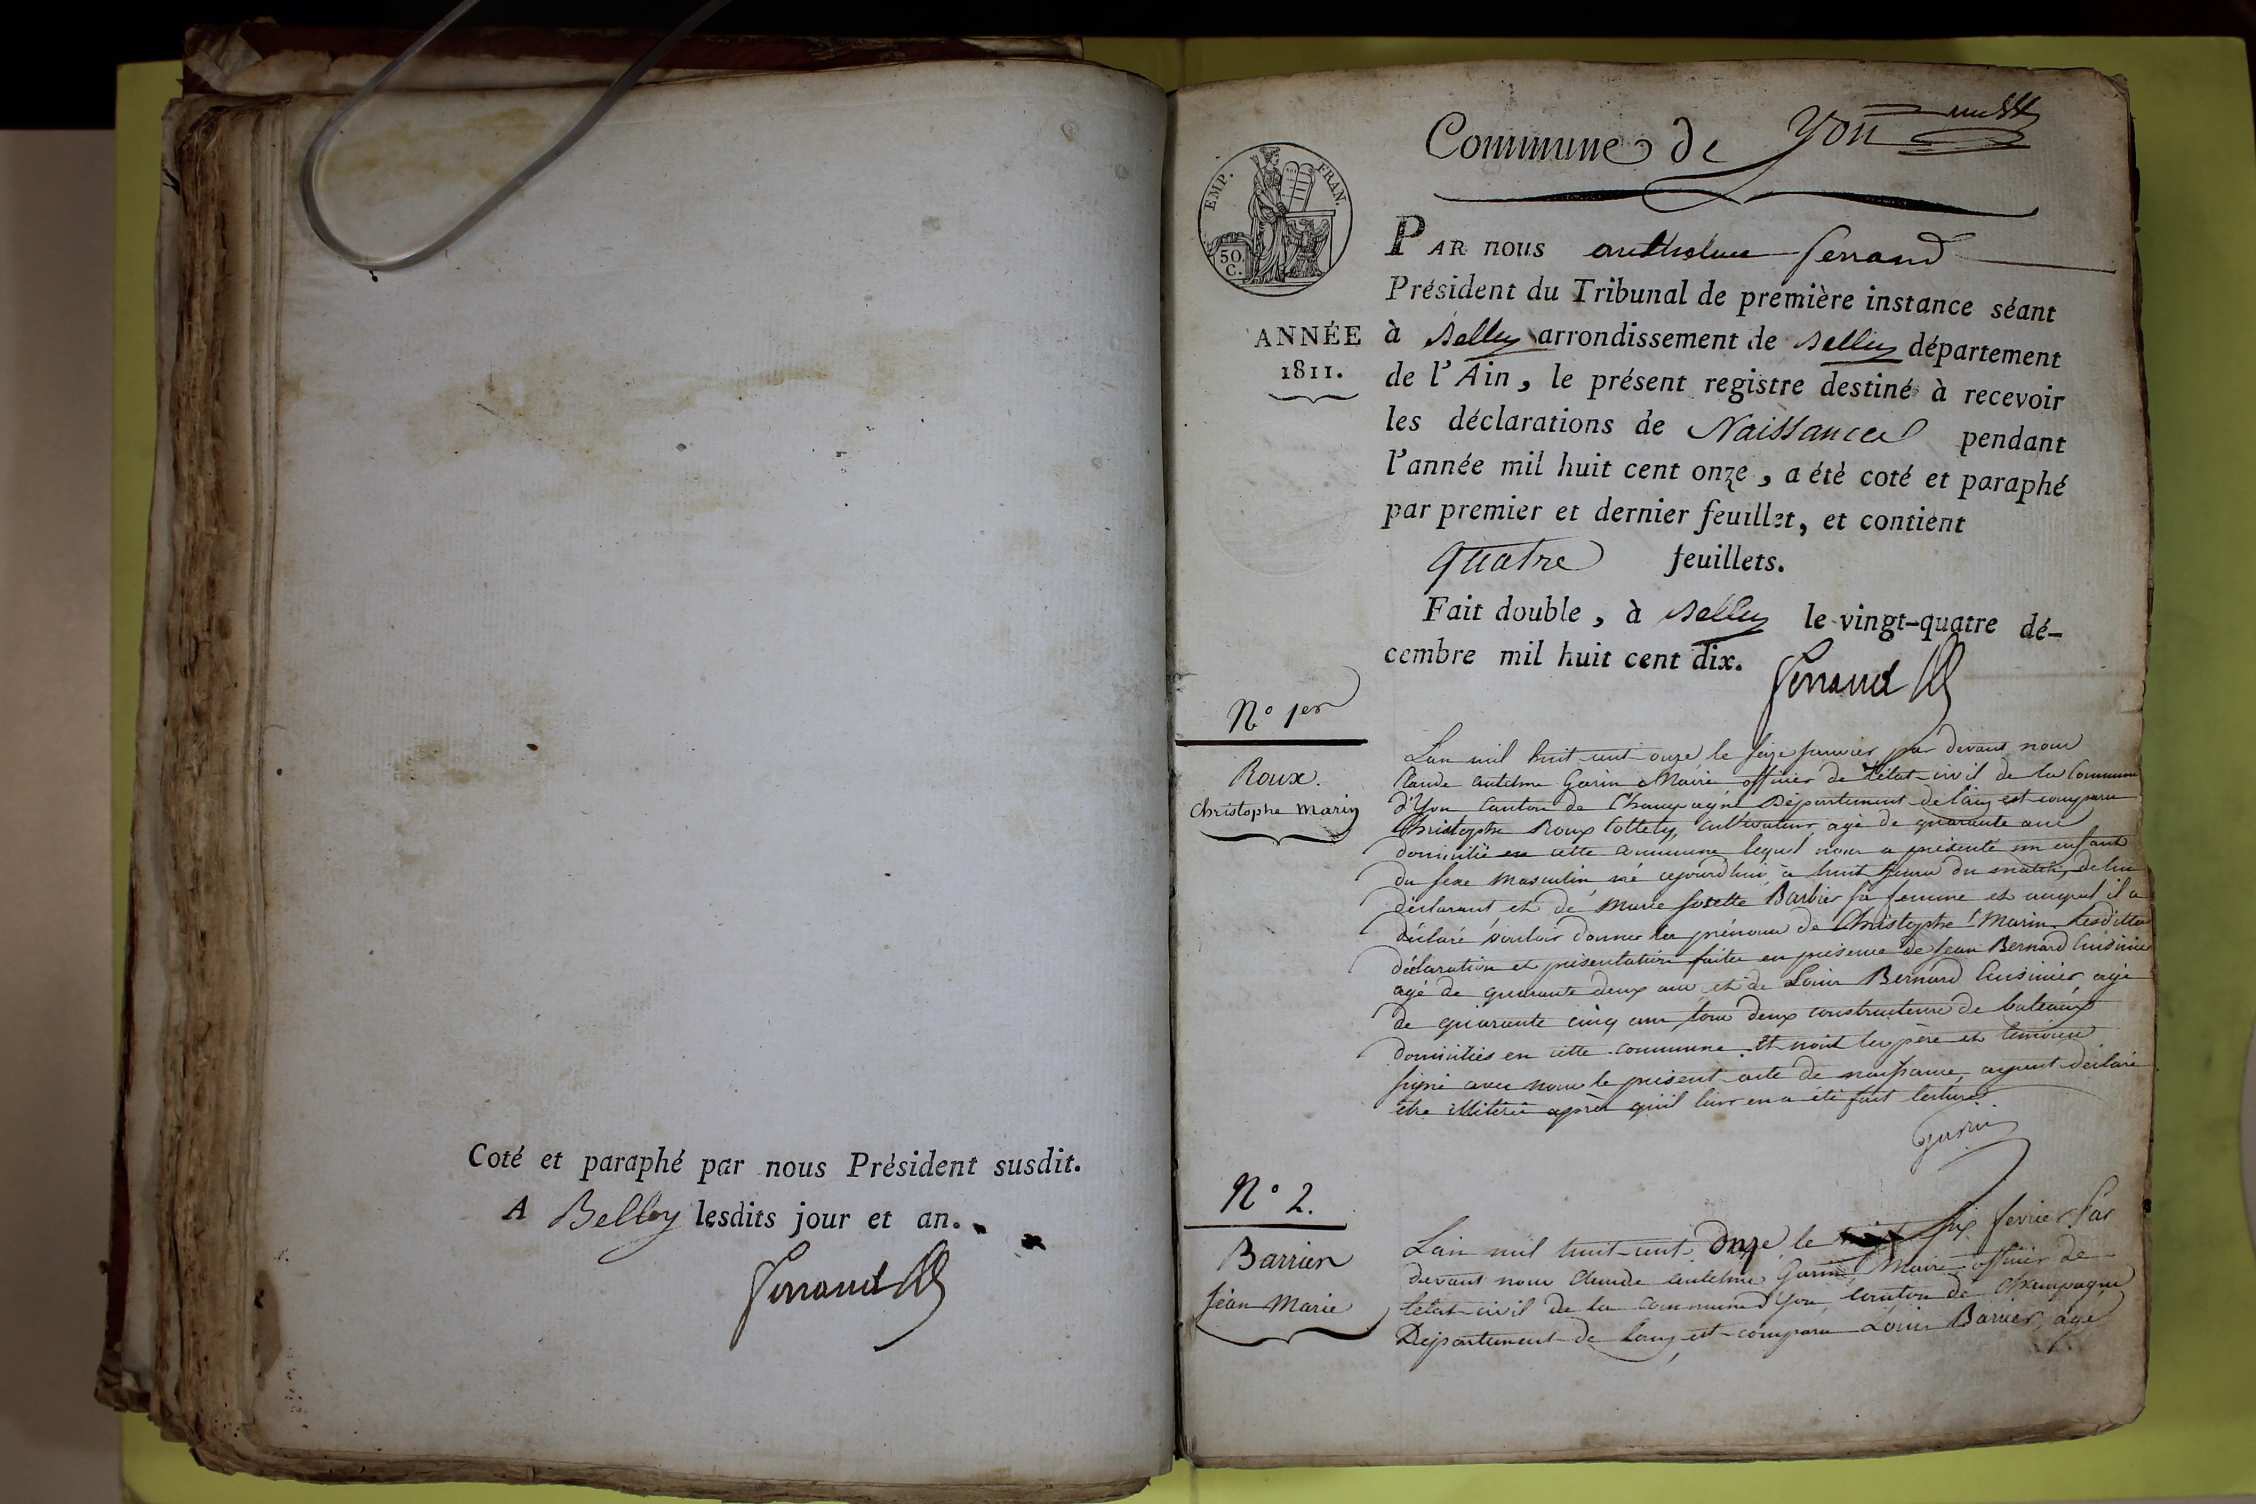 Coté et paraphé par nous Président susdit.
A Belley lesdits jour et an.
Ferrand
Commune de Yon
EMP. FRAN.
50. C.
ANNÉE
1811.
PAR nous anthelme ferrand
Président du Tribunal de première instance séant
à Belley arrondissement de Belley département
de l'Ain, le présent registre destiné à recevoir
les déclarations de Naissances pendant
l'année mil huit cent onze, a été coté et paraphé
par premier et dernier feuillet, et contient
quatre feuillets.
Fait double, à Belley le vingt-quatre dé-
cembre mil huit cent dix.
Ferrand
N° 1er
Roux.
Christophe Marin
Lan mil huit cent onze le seize janvier par devant nous
Claude antelme Garin Maire officier de l'état-civil de la Commune
d'Yon Canton de Champagne Département de l'ain est comparu
Christophe Roux Collety, cultivateur agé de quarante ans
domicilié en cette commune lequel nous a présenté un enfant
du sexe masculin né ajourd'hui à huit heures du matin, de lui
déclarant et de Marie Josette Barbier sa femme et auquel il a
déclaré vouloir donner les prénoms de Christophe Marin. Lesdittes
déclaration et présentation faites en présence de Jean Bernard Cuisinier
agé de quarante deux ans et de Louis Bernard Cuisinier agé
de quarante cinq ans tous deux constructeurs de bateaux
domiciliés en cette commune. Et n'ont les père et témoins
signé avec nous le présent acte de naissance, ayant déclaré
être illitérés après qu'il leur en a été fait lecture.
Garin
N° 2.
Barrier
Jean Marie
Lan mil huit-cent onze le six fevrier Par
devant nous Claude antelme Garin, Maire officier de
l'état-civil de la commune d'Yon, Canton de Champagne
Département de l'ain, est comparu Louis Barrier, agé